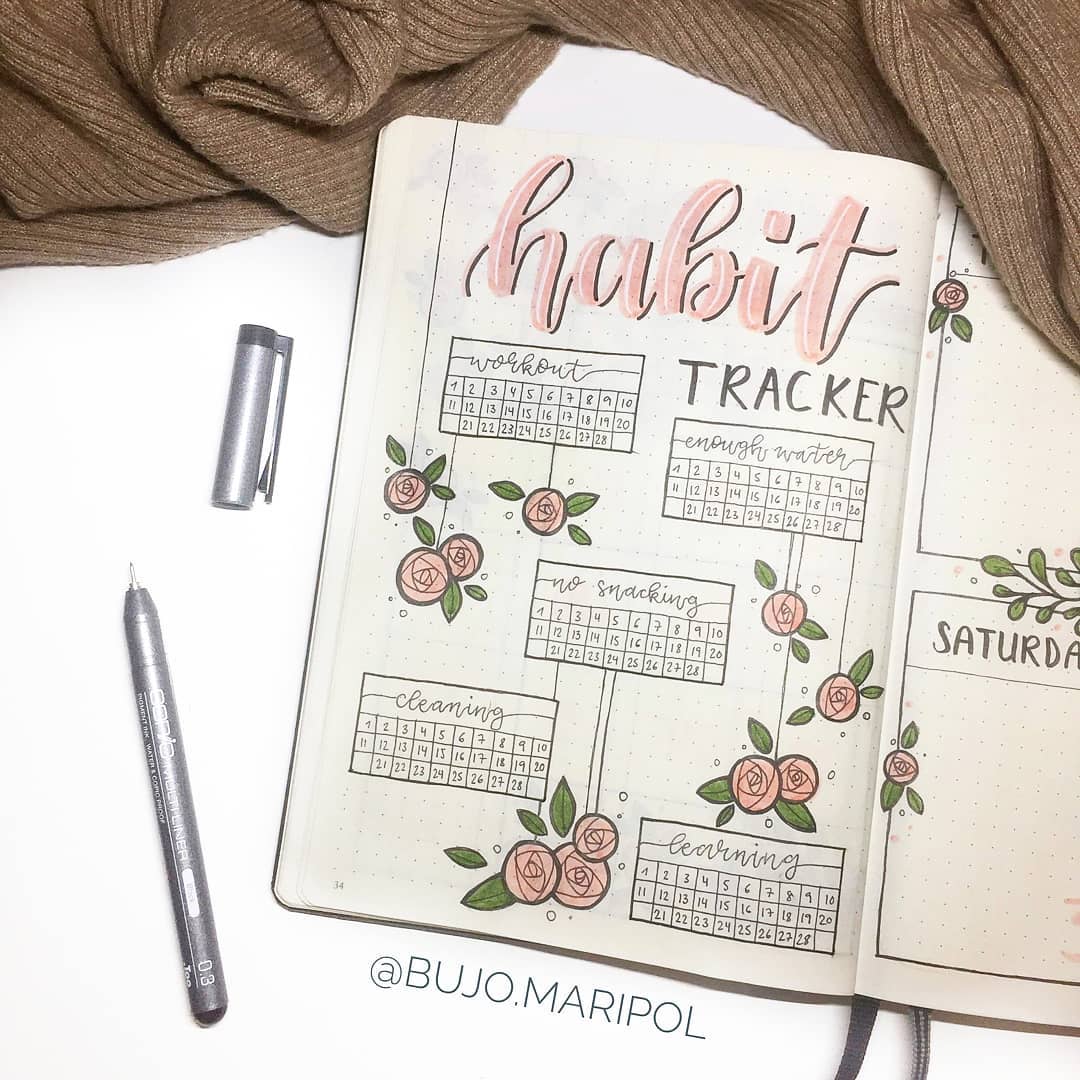 habit
TRACKER
workout
1 2 3 4 5 6 7 8 9 10
11 12 13 14 15 16 17 18 19 20
21 22 23 24 25 26 27 28
enough water
1 2 3 4 5 6 7 8 9 10
11 12 13 14 15 16 17 18 19 20
21 22 23 24 25 26 27 28
no snacking
1 2 3 4 5 6 7 8 9 10
11 12 13 14 15 16 17 18 19 20
21 22 23 24 25 26 27 28
cleaning
1 2 3 4 5 6 7 8 9 10
11 12 13 14 15 16 17 18 19 20
21 22 23 24 25 26 27 28
learning
1 2 3 4 5 6 7 8 9 10
11 12 13 14 15 16 17 18 19 20
21 22 23 24 25 26 27 28
34
SATURDA
PIGMENT INK · WATER & COPIC PROOF
0.3
@BUJO.MARIPOL